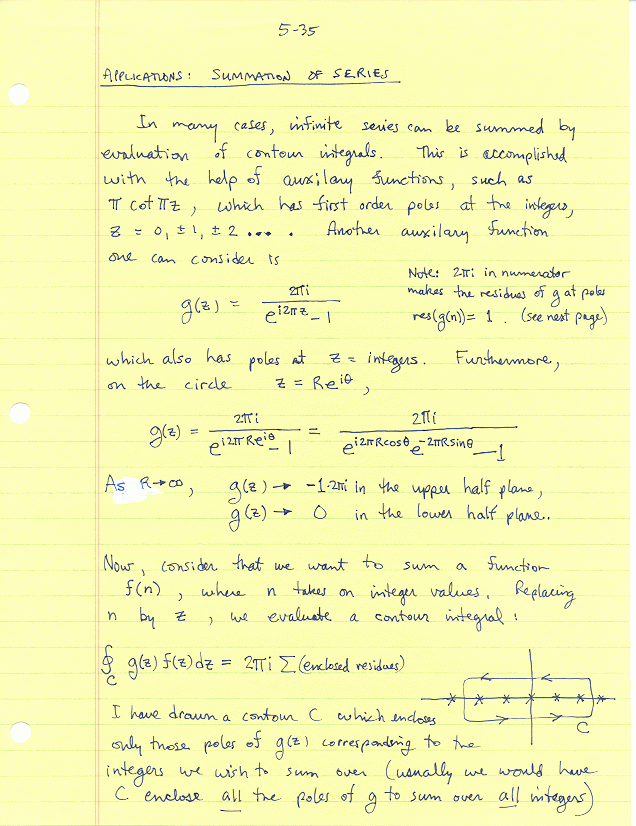 5-35
APPLICATIONS: SUMMATION OF SERIES
In many cases, infinite series can be summed by
evaluation of contour integrals. This is accomplished
with the help of auxilary functions, such as
π cot πz, which has first order poles at the integers,
z = 0, ±1, ±2 .... Another auxilary function
one can consider is
g(z) = 2πi / (e^{i2πz} - 1)
Note: 2πi in numerator
makes the residues of g at poles
res(g(n)) = 1. (see next page)
which also has poles at z = integers. Furthermore,
on the circle z = Re^{iθ},
g(z) = 2πi / (e^{i2πRe^{iθ}} - 1) = 2πi / (e^{i2πRcosθ} e^{-2πRsinθ} - 1)
As R→∞, g(z) → -1·2πi in the upper half plane,
g(z) → 0 in the lower half plane.
Now, consider that we want to sum a function
f(n), where n takes on integer values. Replacing
n by z, we evaluate a contour integral:
∮_C g(z) f(z) dz = 2πi Σ (enclosed residues)
C
I have drawn a contour C which encloses
only those poles of g(z) corresponding to the
integers we wish to sum over (usually we would have
C enclose all the poles of g to sum over all integers)